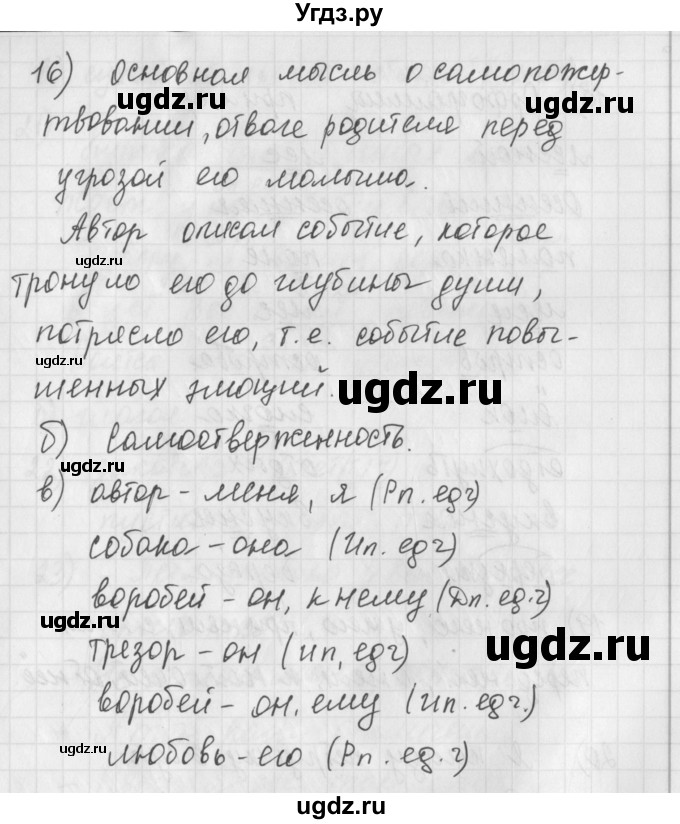 Угдз.ру
16) Основная мысль о самопожер-
ugdz.ru
твовании, отваге родителя перед
угрозой его малыша.
Автор описал событие, которое
ugdz.ru
тронуло его до глубины души,
потрясло его, т.е. событие повы-
ugdz.ru ugdz.ru
шенных эмоций.
б) Самоотверженность.
ugdz.ru
в) автор – меня, я (Рп. едч)
собака – она (Ип. едч)
ugdz.ru
воробей – он, к нему (Дп. ед.ч)
ugdz.ru
трезор – он (ип, едч)
ugdz.ru
воробей – он, ему (Ип. едч.)
ugdz.ru
любовь – его (Рп. ед.ч)
ugdz.ru